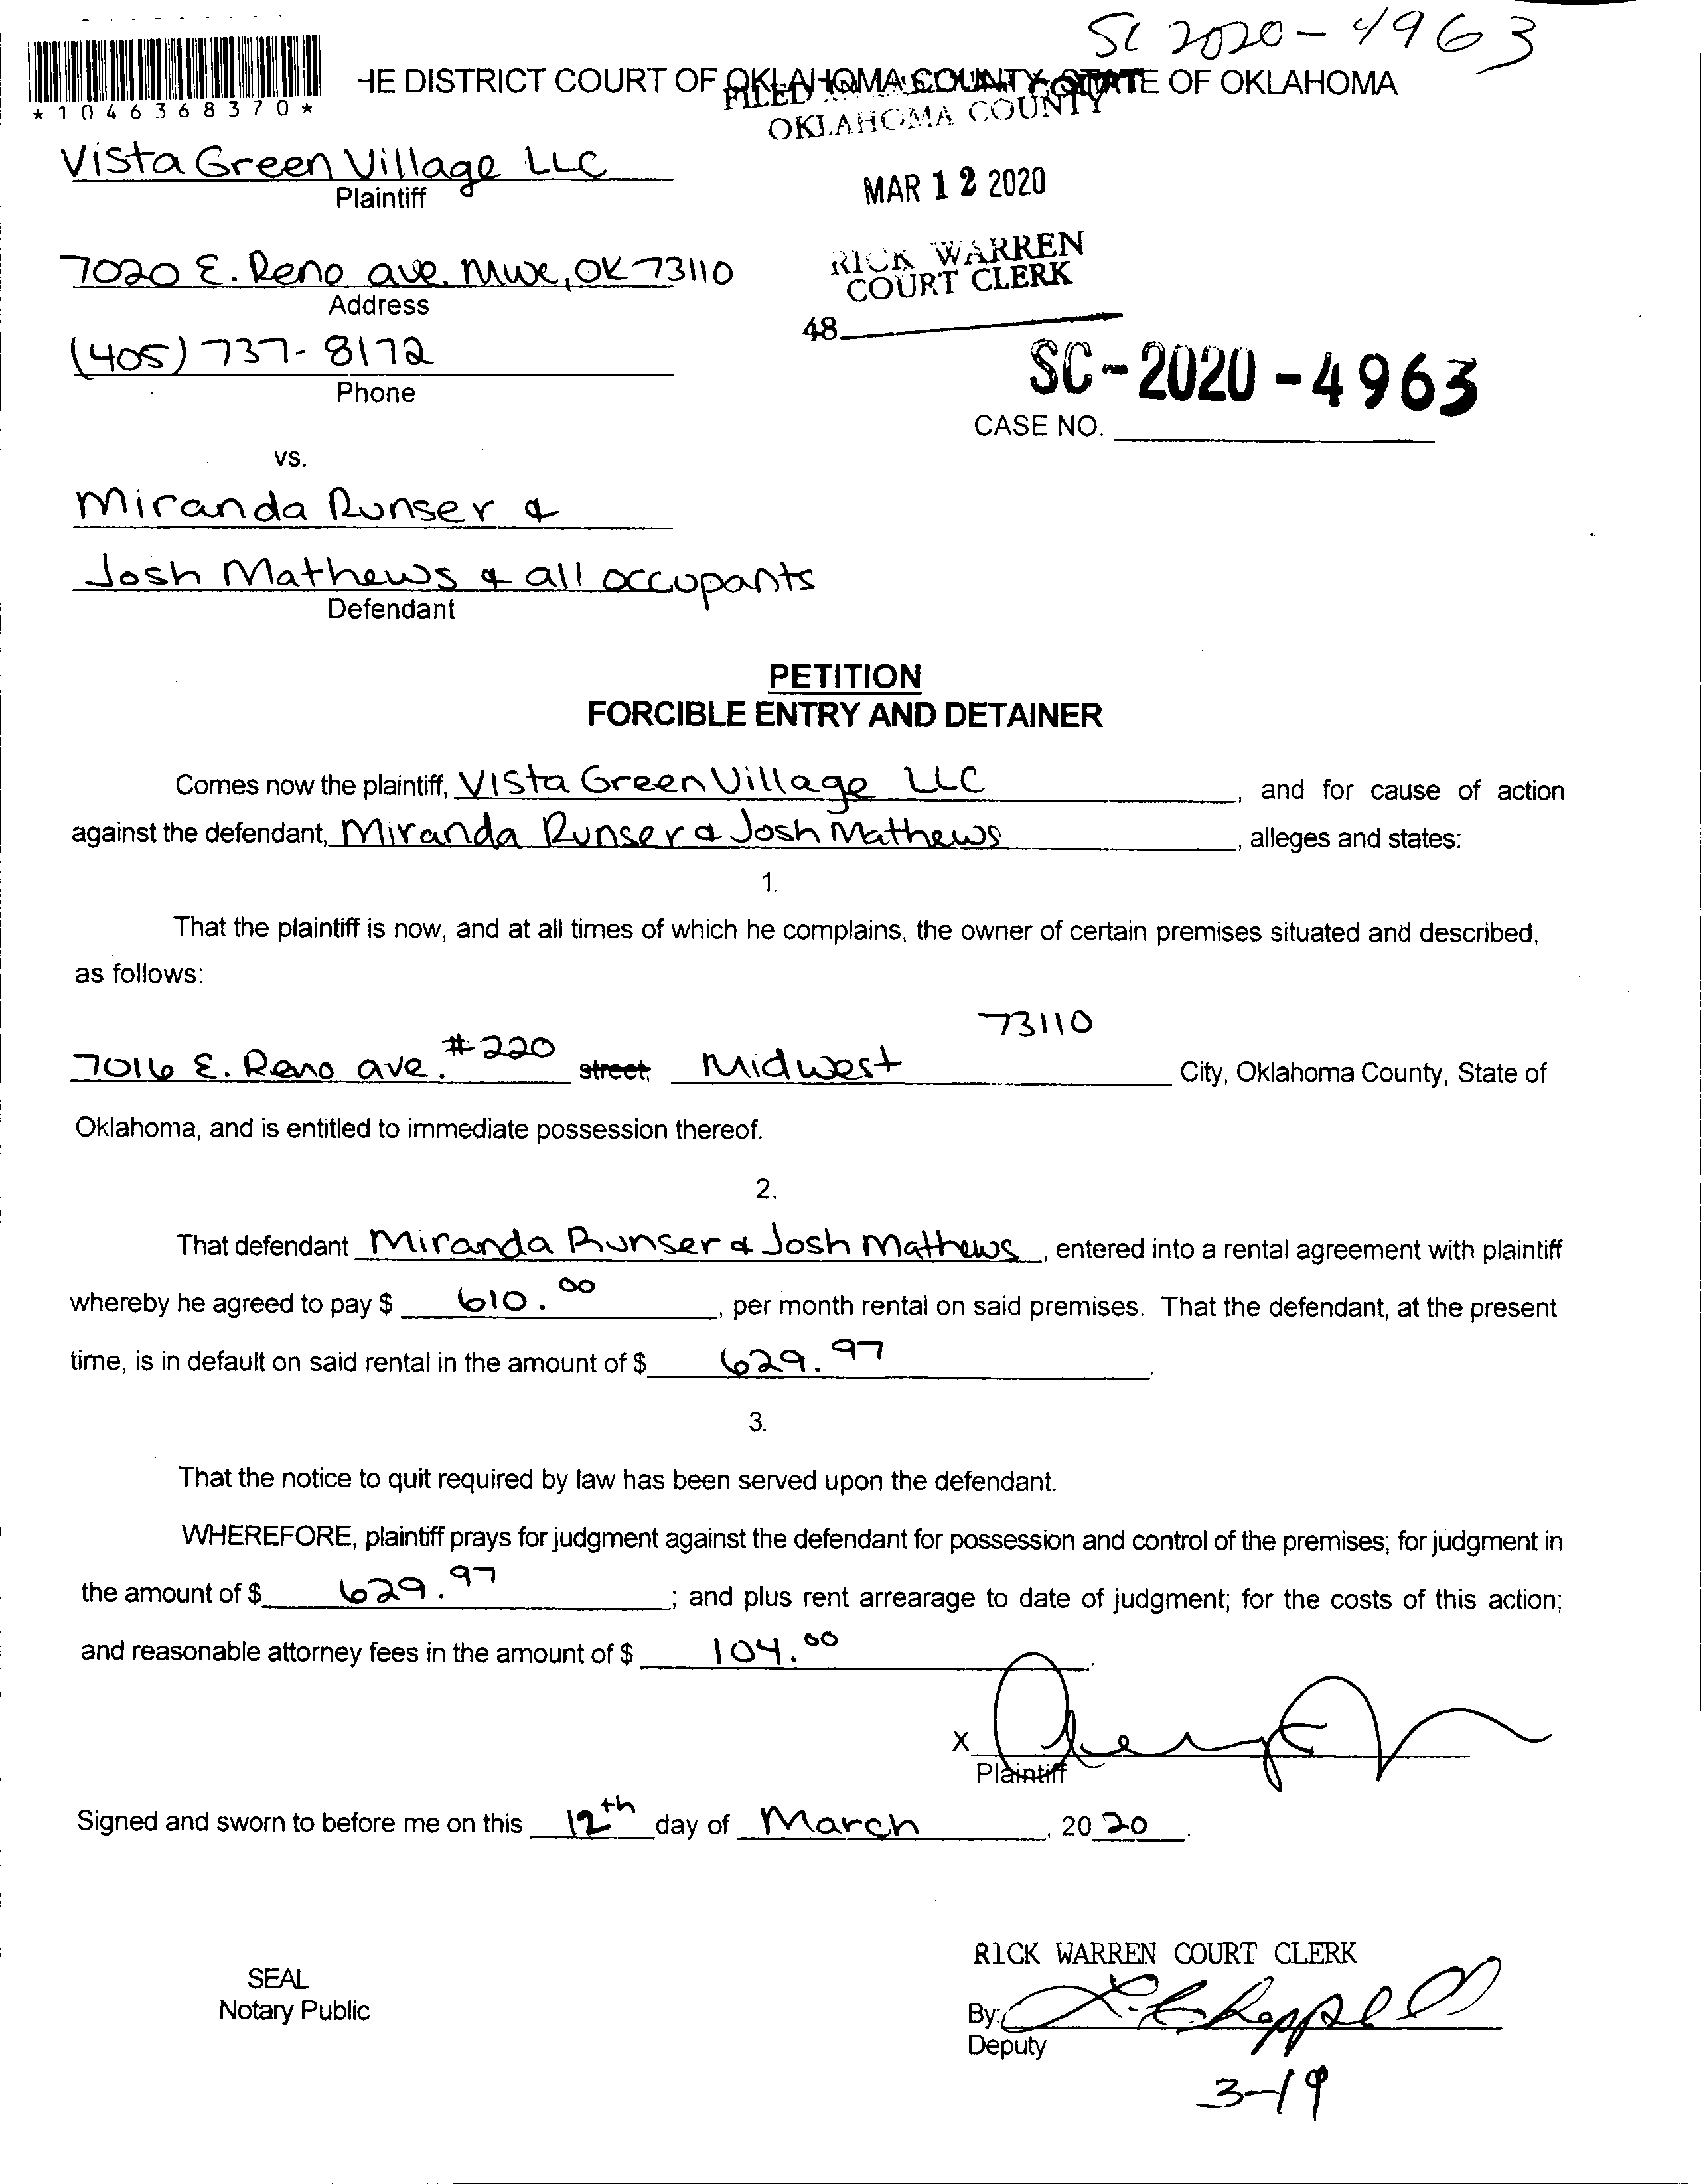 SC 2020-4963
*1046368370*
HE DISTRICT COURT OF OKLAHOMA COUNTY, STATE OF OKLAHOMA
FILED
OKLAHOMA COUNTY
Vista Green Village LLC
Plaintiff
MAR 12 2020
RICK WARREN
COURT CLERK
7020 E. Reno ave. MWC, OK 73110
Address
48
(405) 737-8172
Phone
SC-2020-4963
CASE NO.
vs.
Miranda Runser &
Josh Mathews & all occupants
Defendant
PETITION
FORCIBLE ENTRY AND DETAINER
Comes now the plaintiff, Vista Green Village LLC, and for cause of action
against the defendant, Miranda Runser & Josh Mathews, alleges and states:
1.
That the plaintiff is now, and at all times of which he complains, the owner of certain premises situated and described,
as follows:
73110
7016 E. Reno ave. #220 street, Midwest City, Oklahoma County, State of
Oklahoma, and is entitled to immediate possession thereof.
2.
That defendant Miranda Runser & Josh Mathews, entered into a rental agreement with plaintiff
whereby he agreed to pay $ 610.00, per month rental on said premises. That the defendant, at the present
time, is in default on said rental in the amount of $ 629.97.
3.
That the notice to quit required by law has been served upon the defendant.
WHEREFORE, plaintiff prays for judgment against the defendant for possession and control of the premises; for judgment in
the amount of $ 629.97; and plus rent arrearage to date of judgment; for the costs of this action;
and reasonable attorney fees in the amount of $ 104.00.
X
Plaintiff
Signed and sworn to before me on this 12th day of March, 2020.
RICK WARREN COURT CLERK
SEAL
Notary Public
By: L. Chappell
Deputy
3-19